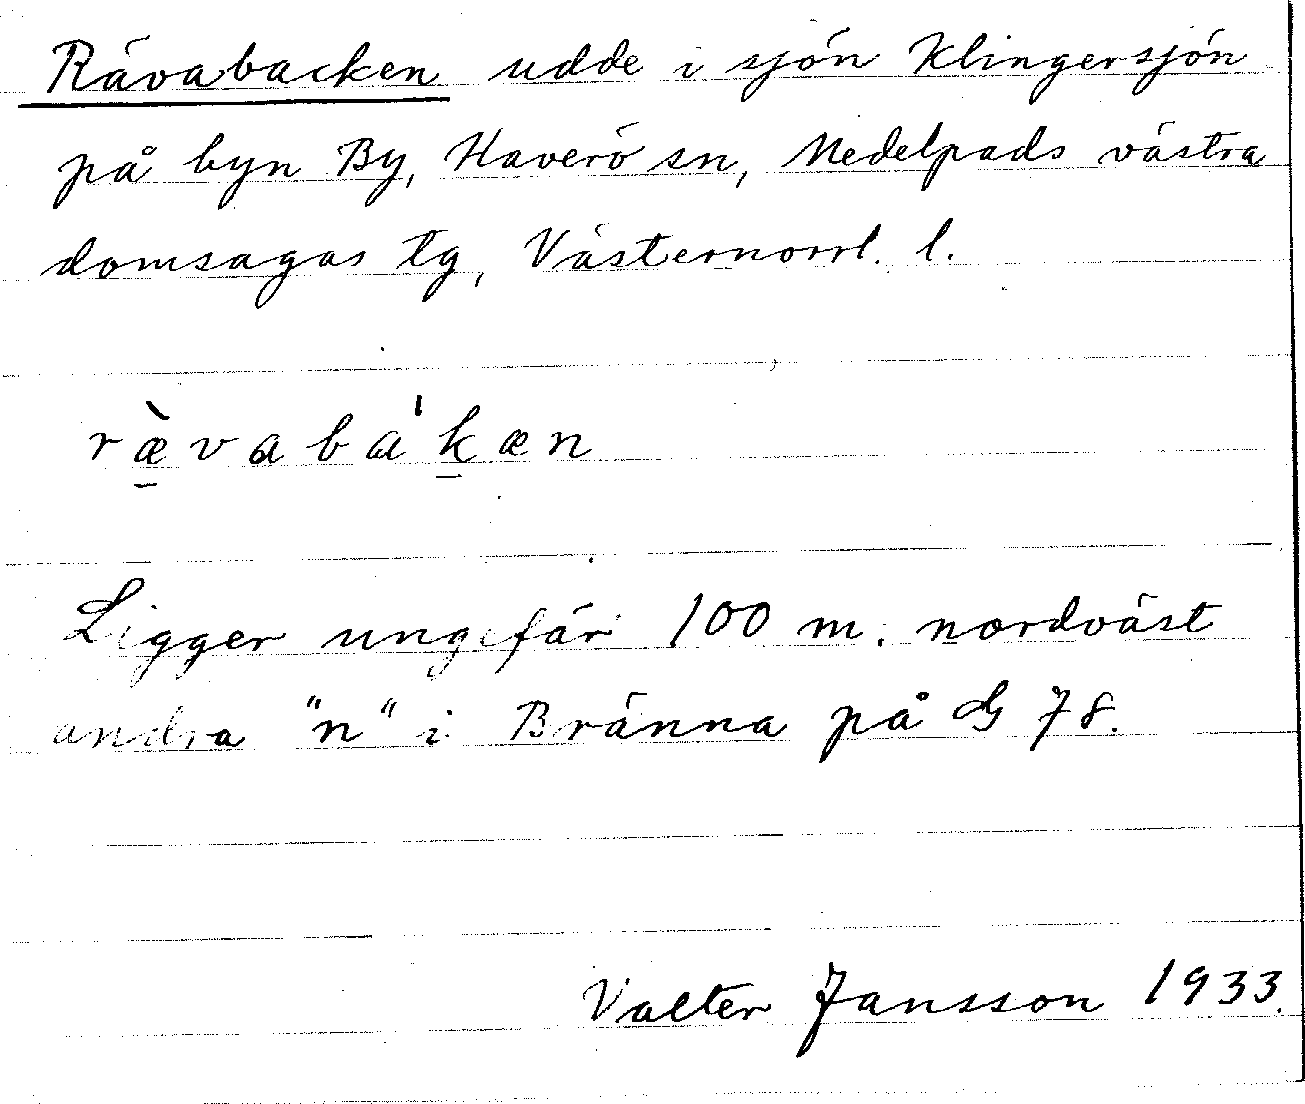 Rävabacken udde i sjön Klingersjön
på byn By, Haverö sn, Medelpads västra
domsagas tg, Västernorrl. l.
ræ̀vaba'kæn
Ligger ungefär 100 m. nordväst
andra "n" i Bränna på G 78.
Valter Jansson 1933.